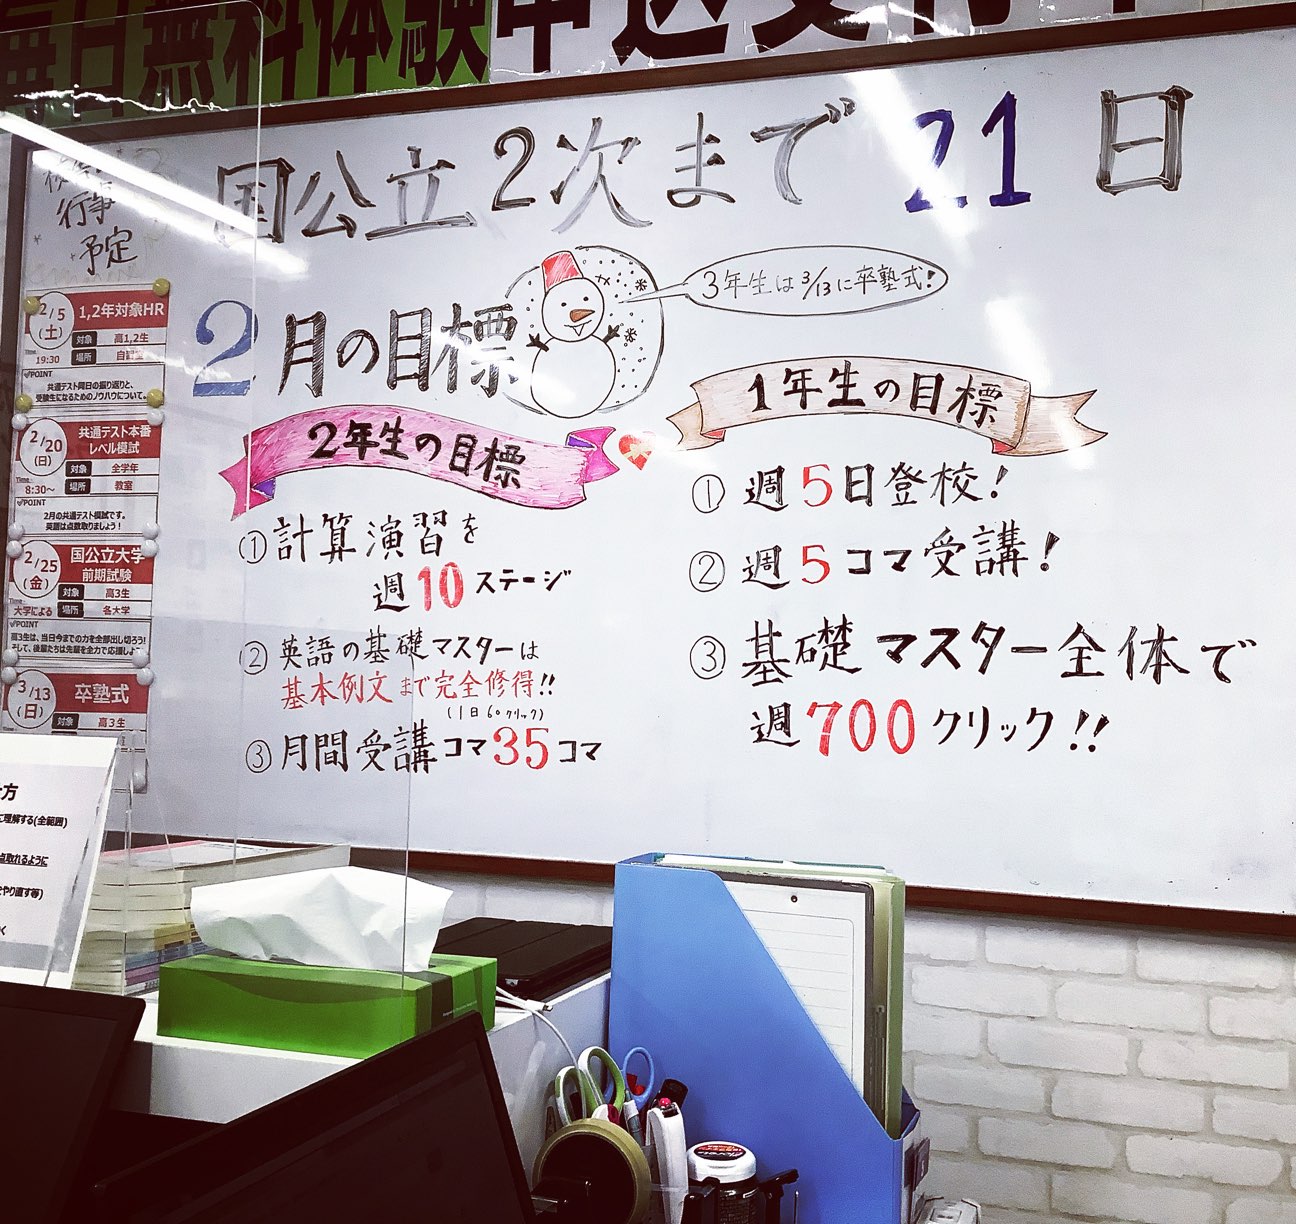 毎日無料体験申込受付中
国公立2次まで21日
行事
予定
2月の目標
3年生は3/13に卒塾式!
2年生の目標
①計算演習を
週10ステージ
②英語の基礎マスターは
基本例文まで完全修得!!
(1日60クリック)
③月間受講コマ35コマ
1年生の目標
①週5日登校!
②週5コマ受講!
③基礎マスター全体で
週700クリック!!
2/5
(土)
1,2年対象HR
対象 高1,2生
Time
19:30
場所
POINT
共通テスト同日の振り返りと、
受験生になるためのノウハウについて。
2/20
(日)
共通テスト本番
レベル模試
対象 全学年
Time
8:30~
場所 教室
POINT
2月の共通テスト模試です。
英語は点数取りましょう!
2/25
(金)
国公立大学
前期試験
対象 高3生
Time
大学による
場所 各大学
POINT
高3生は、当日今までの力を全部出し切ろう!
そして、後輩たちは先輩を全力で応援しよう
3/13
(日)
卒塾式
対象 高3生
方
に理解する(全範囲)
点取れるように
やり直す等)